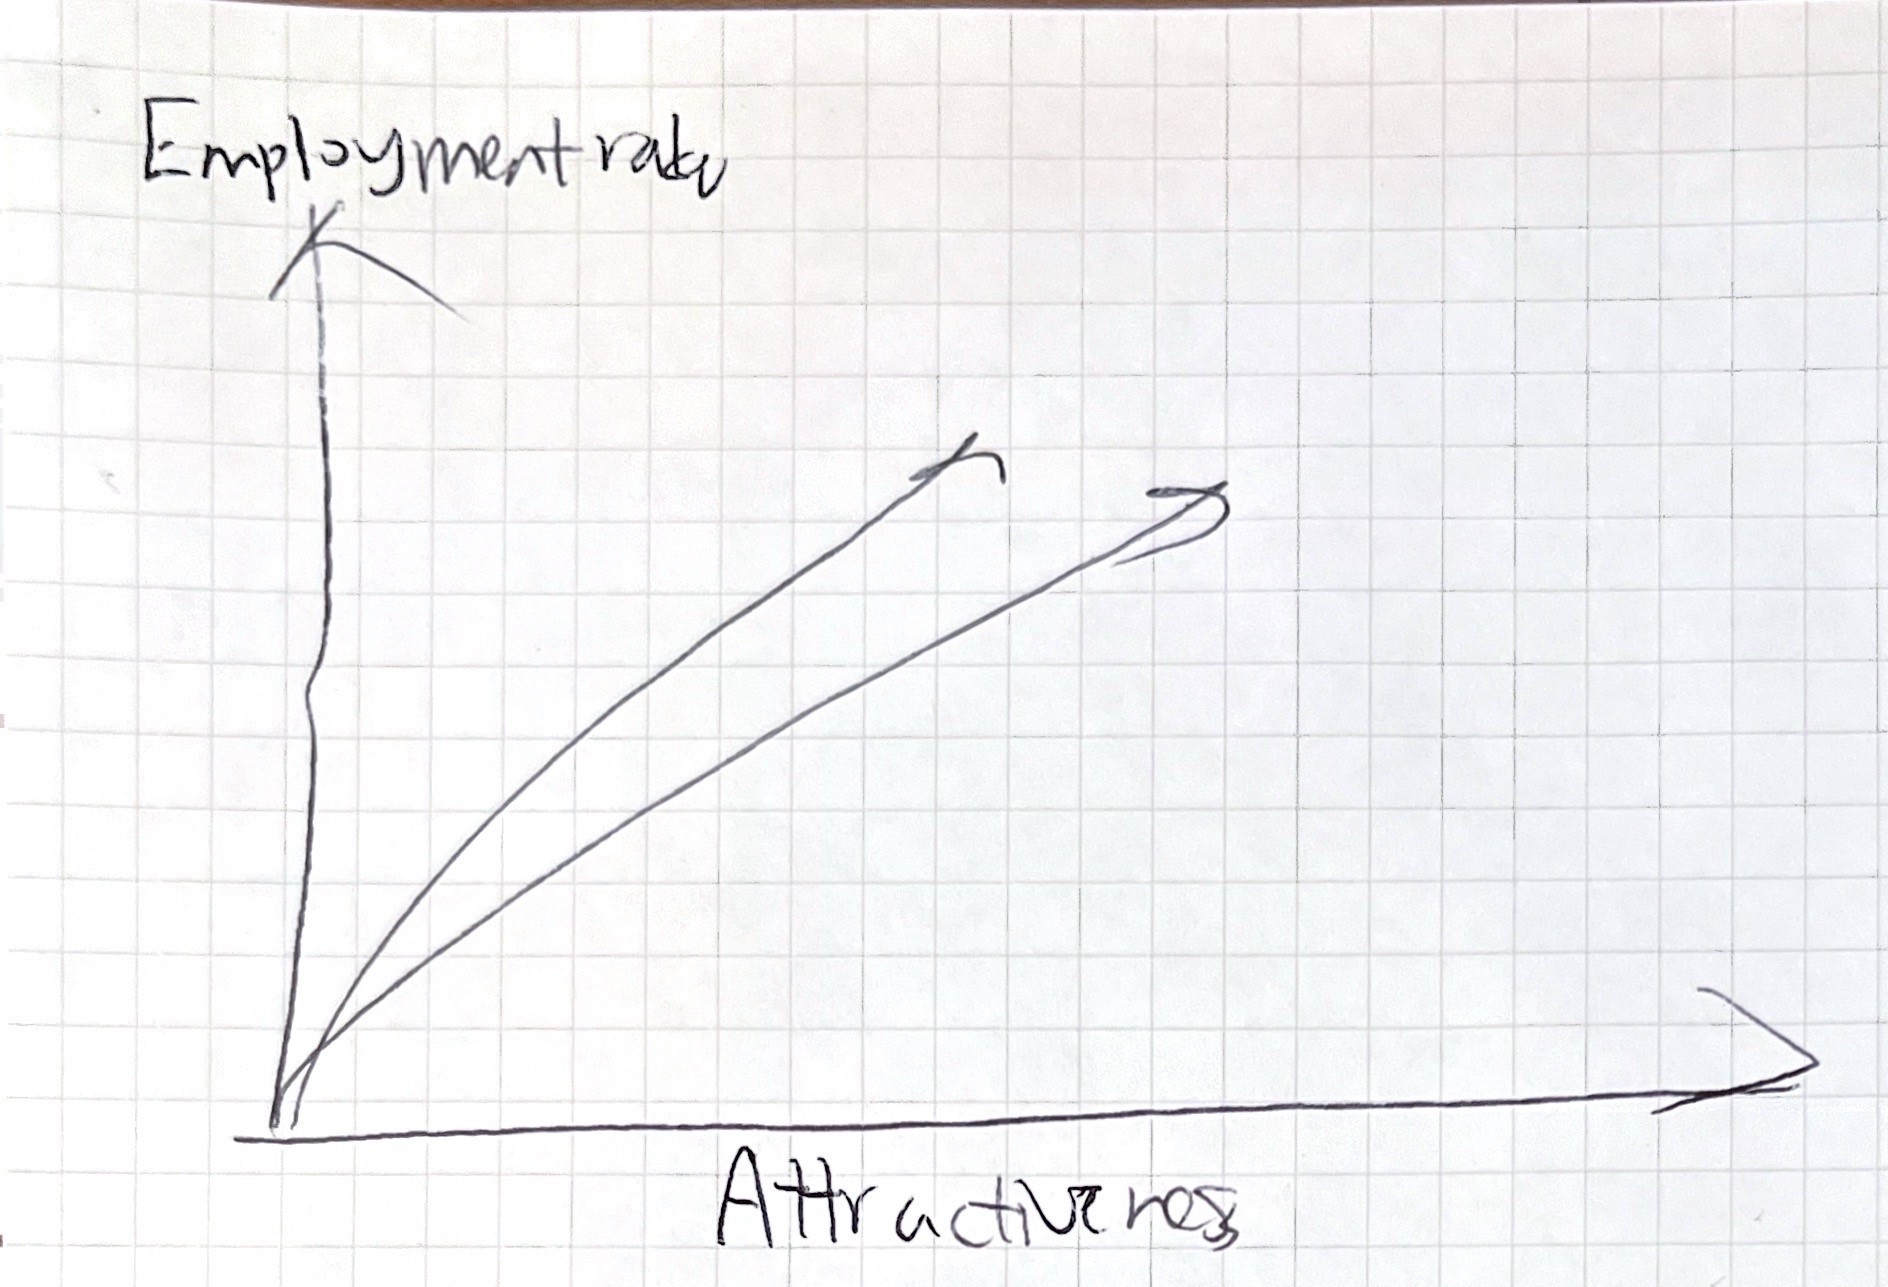 Employment rate
Attractiveness